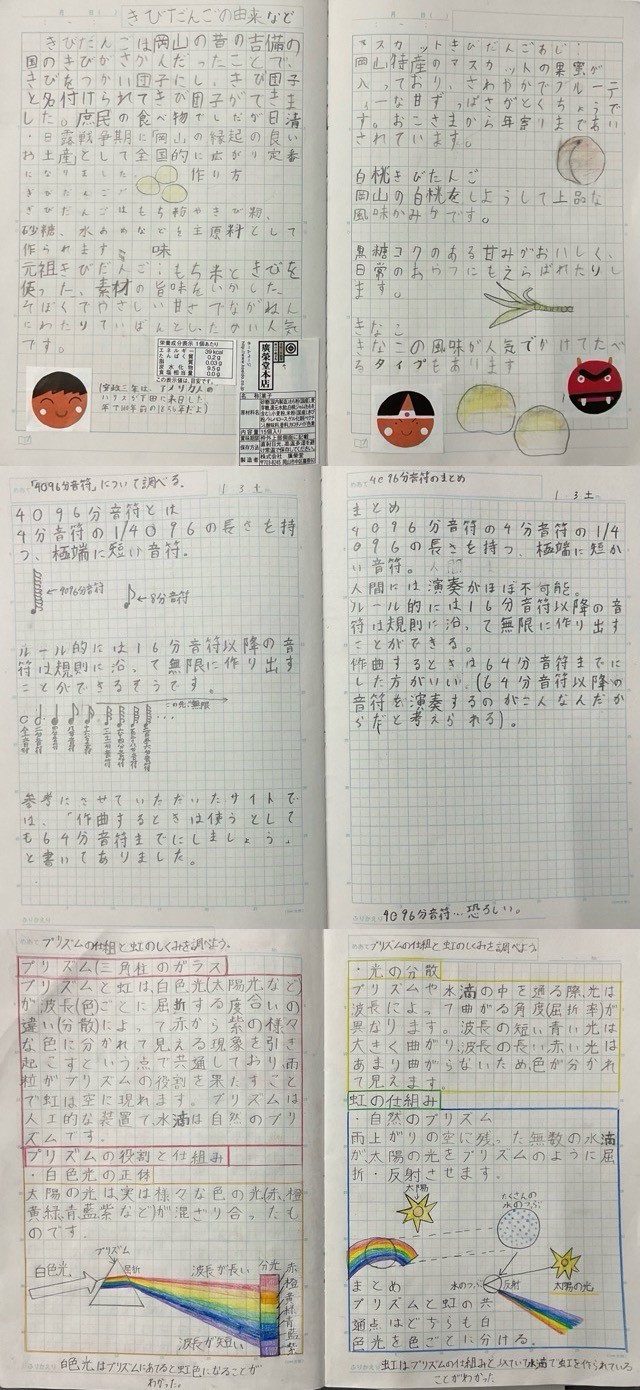 きびだんごの由来など
きびだんごは岡山の昔の吉備の
国のきびがさかんだったことで、
きびをつかい団子にし、きび団子
と名付けられてきび団子ができま
した。庶民の食べ物でしたが日清
・日露戦争期に岡山の縁起の良い
お土産として全国的に広がり定番
になりました
作り方
きびだんご
きびだんごはもち粉やきび粉、
砂糖、水あめなどを主原料として
作られます。
味
元祖きびだんご:もち米ときびを
使った、素材の旨味をいかした
そぼくでやさしい甘さでながねん
にわたりていばんとしたかい人気
です。
栄養成分表示 1個あたり
エネルギー 39kcal
たんぱく質 0.2g
脂質 0.03g
炭水化物 9.5g
食塩相当量 0.0g
この表示値は、目安です。
廣榮堂本店
名称 菓子
原材料名
内容量 15個入り
賞味期限 枠外上部側面に記載
保存方法 直射日光、高温多湿を避け常温で保存してください。
製造者 株式会社 廣榮堂
マスカットきびだんごあじ:
岡山特産のマスカットの果蜜が
入っており、さわやかでフルーテ
ィーな甘ずっぱさがとくちょうで
す。お こさまから年寄りまであい
されています。
白桃きびだんご
岡山の白桃をしようして上品な
風味かみケです。
黒糖コクのある甘みがおいしく、
日常のおやつにもえらばれたりし
ます。
きなこ
きなこの風味が人気でかけてたべ
るタイプもあります
「4096分音符」について調べる。
1 3 土
4096分音符とは
4分音符の1/4096の長さを持
つ、極端に短い音符。
←4096分音符
←8分音符
ルール的には16分音符以降の音
符は規則に沿って無限に作り出す
ことができるそうです。
この先、無限
全音符
参考にさせていただいたサイトで
は、「作曲するときは使うとして
も64分音符までにしましょう」
と書いてありました。
ふりかえり
めあて 4096分音符のまとめ
1 3 土
まとめ
4096分音符の4分音符の1/4
096の長さを持つ、極端に短か
い音符。
人間には演奏がほぼ不可能。
ルール的には16分音符以降の音
符は規則に沿って無限に作り出す
ことができる。
作曲するときは64分音符までに
した方がいい。(64分音符以降の
音符を演奏するのがこんなんだか
らだと考えられる)。
ふりかえり 4096分音符…恐ろしい。
めあて プリズムの仕組と虹のしくみを調べよう。
プリズム(三角柱のガラス
プリズムと虹は、白色光(太陽光など)
が波長(色)ごとに屈折する度合いの
違い(分散)によって赤から紫の様々
な色に分かれて見える現象を引き
起こすという点で共通しており、雨
粒がプリズムの役割を果たすこと
で虹は空に現れます。プリズムは
人工的な装置で、水滴は自然のプリ
ズムです。
プリズムの役割と仕組み
・白色光の正体
太陽の光は実は様々な色の光(赤、橙
黄緑、青、藍紫など)が混ざり合ったも
のです。
プリズム
白色光
屈折
波長が長い
波長が短い
分光
赤
橙
黄
緑
青
藍
紫
ふりかえり 白色光はプリズムにあてると虹色になることが
わかった。
めあて プリズムの仕組と虹のしくみを調べよう
・光の分散
プリズムや水滴の中を通る際、光は
波長によって曲がる角度(屈折率)が
異なります。波長の短い青い光は
大きく曲がり、波長の長い赤い光は
あまり曲がらないため、色が分かれ
て見えます。
虹の仕組み
・自然のプリズム
雨上がりの空に残った無数の水滴
が太陽の光をプリズムのように屈
折・反射させます。
太陽
たくさんの
水のつぶ
水のつぶ
反射
太陽の光
まとめ
プリズムと虹の共
通点はどちらも白
色光を色ごとに分ける。
ふりかえり 虹はプリズムの仕組みと似ていて水滴で虹を作られている
ことがわかった。